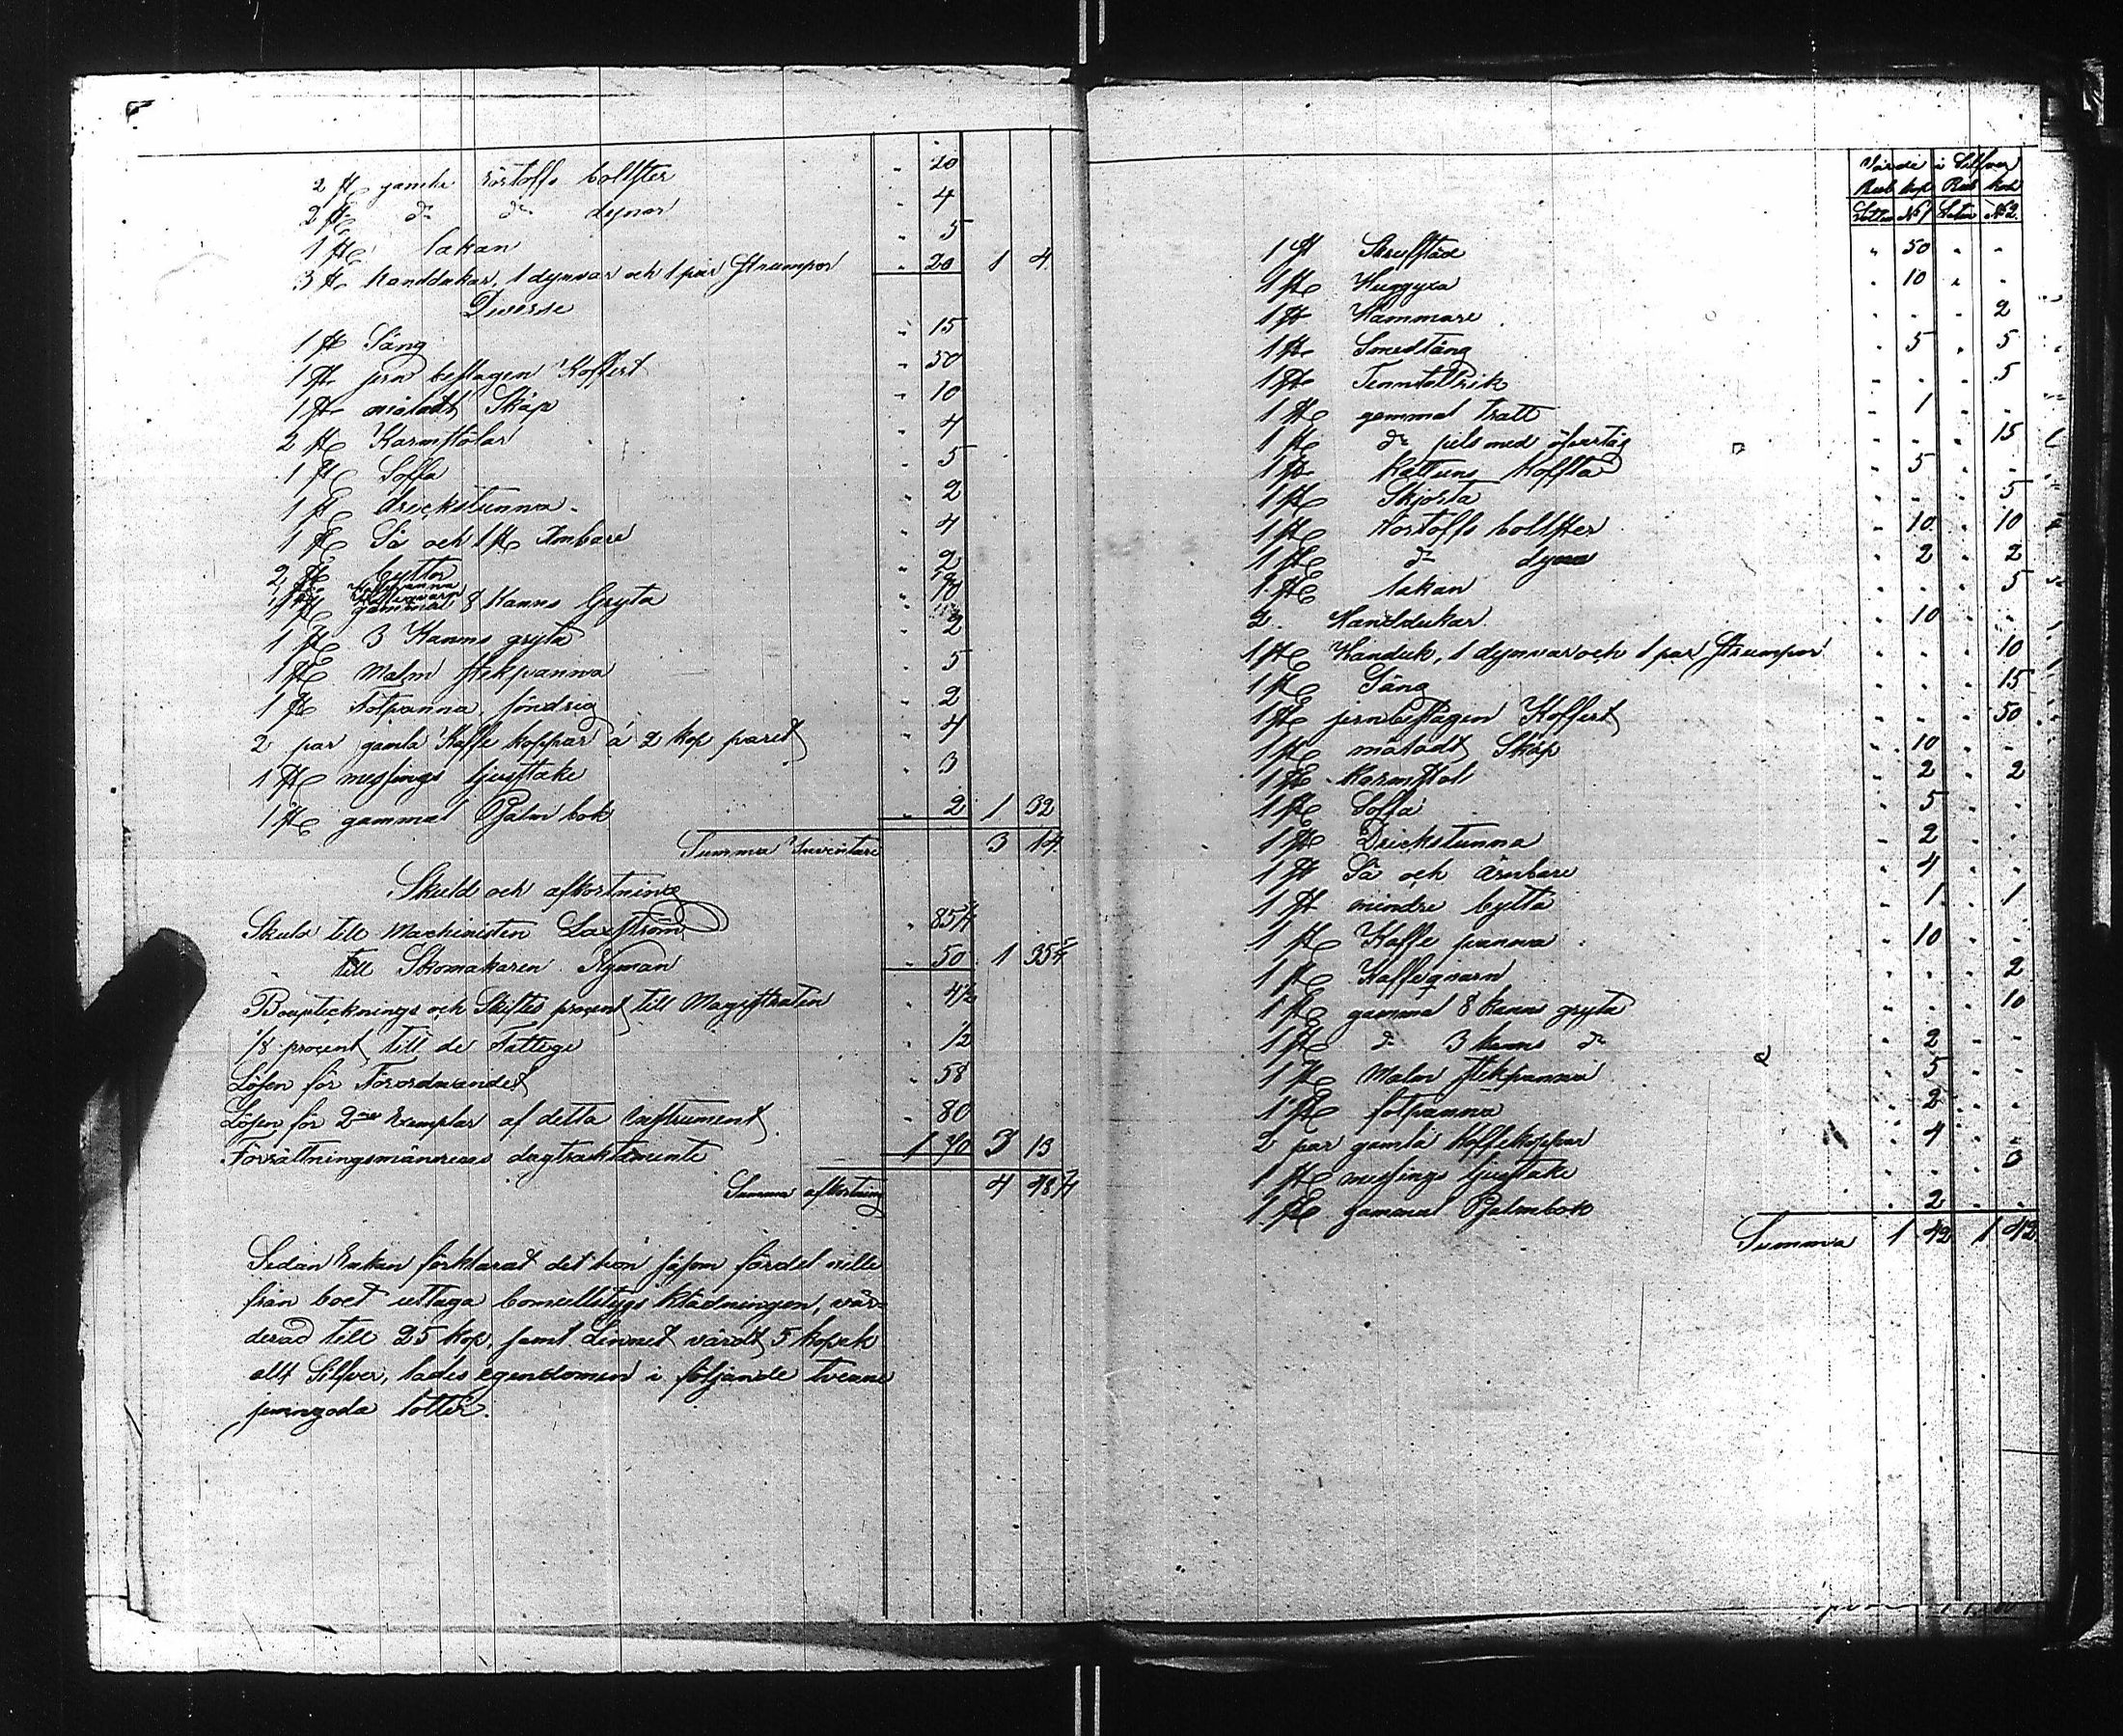 2 st gamla Nöstoffs bollster " 20
2 st do do dynor " 4
1 st lakan " 5
3 st Handdukar, 1 dynvar och 1 par strumpor " 20 1 4
Diverse
1 st Säng " 15
1 st jern beslagen Koffert " 50
1 st måladt Skåp " 10
2 st Karmstolar " 4
1 st Soffa " 5
1 st drickstunna " 2
1 st Så och 1 st Ämbare " 4
2 st byttor " 2
1 st gammal 8 Kanns Gryta
1 st 3 Kanns gryta " 2
1 st Malm stekpanna " 5
1 st Fotpanna, söndrig " 2
2 par gamla Kaffe koppar á 2 kop paret " 4
1 st messings ljusstake " 3
1 st gammal Psalm bok " 2 1 32
Summa Inventarie 3 14
Skuld och afkortning
Skuld till Machinisten Laxström " 85 3/4
till Skomakaren Nyman " 50 1 35 3/4
Bouptecknings och Skiftes procent till Magistraten " 4 1/2
1/8 procent till de Fattige " 1/2
Lösen för Förordnandet " 58
Lösen för 2ne Exemplar af detta instrument " 80
Förrättningsmännens dagtraktamente 1 70 3 13
Summa afkortning 4 48 3/4
Sedan Enkan förklarat det hon såsom fördel ville
från boet uttaga bomullstygs klädningen, vär-
derad till 25 kop, samt Linnet värdt 5 kopek
allt Silfver, lades egendomen i följande tvenne
jemngoda lotter.
Värde i Silfver
Rub kop Rub kop
Lotten No 1 Lotten No 2.
1 st Skrufstäd " 50 " "
1 st Huggyxa " 10 " "
1 st Hammare " " " 2
1 st Smedtång " 5 " 5
1 st Tenntallrik " " " 5
1 st gammal tratt " 1 " "
1 st do pels med öfvertåg " " " 15
1 st Kattuns Koffta " 5 " "
1 st Skjorta " " " 5
1 st Nöstoffs bollster " 10 " 10
1 st do dyna " 2 " 2
1 st lakan " " " 5
2 Handdukar " 10 " "
1 st Handuk, 1 dynvar och 1 par strumpor " " " 10
1 st Säng " " " 15
1 st jernbeslagen Koffert " " " 50
1 st måladt Skåp " 10 " "
1 st Karmstol " 2 " 2
1 st Soffa " 5 " "
1 st Drickstunna " 2 " "
1 st Så och Ämbare " 4 " "
1 st mindre bytta " 1 " 1
1 st Kaffe panna " 10 " "
1 st Kaffeqvarn " " " 2
1 st gammal 8 kanns gryta " " " 10
1 st do 3 kanns do " 2 " "
1 st Malm stekpanna " 5 " "
1 st fotpanna " 2 " "
2 par gamla Kaffekoppar " 4 " "
1 st messings ljusstake " " " 3
1 st gammal Psalmbok " 2 " "
Summa 1 42 1 42